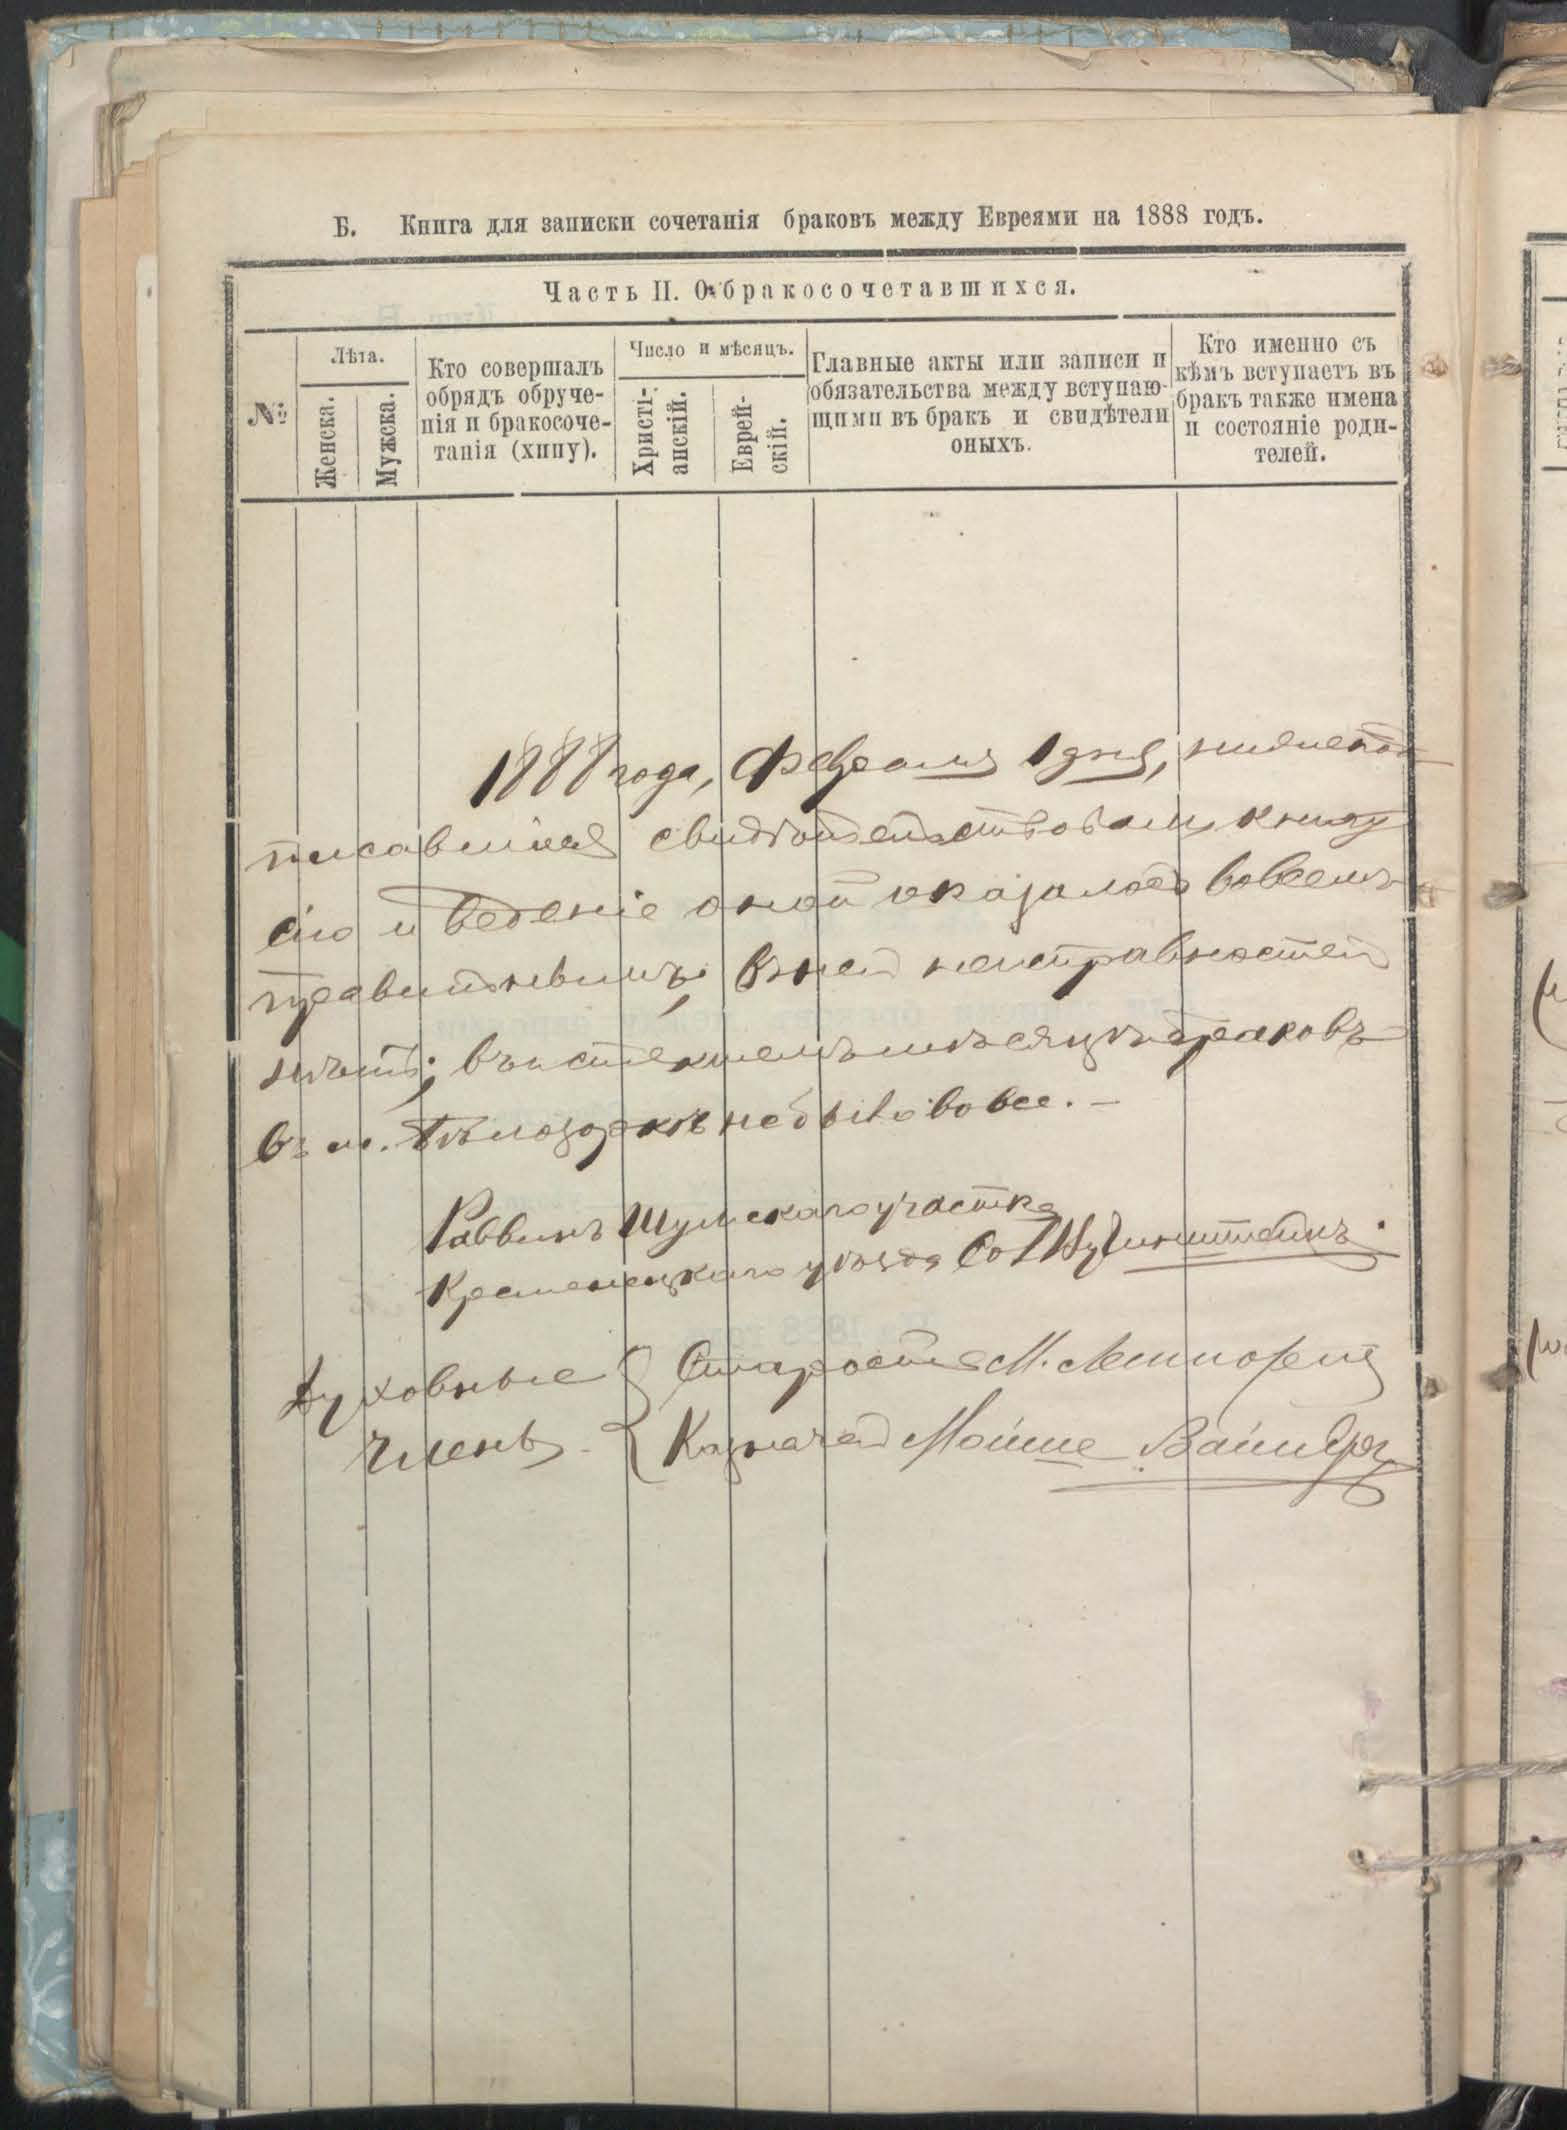 Б. Книга для записки сочетанія браковъ между Евреями на 1888 годъ.
Часть II. О бракосочетавшихся.
№
Лѣта.
Женска.
Мужска.
Кто совершалъ
обрядъ обруче-
нія и бракосоче-
танія (хипу).
Число и мѣсяцъ.
Христі-
анскій.
Еврей-
скій.
Главные акты или записи и
обязательства между вступаю-
щими въ бракъ и свидѣтели
оныхъ.
Кто именно съ
кѣмъ вступаетъ въ
бракъ также имена
и состояніе роди-
телей.
1888 года, Февраля 1 дня, нижепод-
писавшіеся свидѣтельствовали книгу
сію и веденіе оной оказалось вовсемъ
правильнымъ, въ ней неисправностей
нѣтъ; въ истекшемъ мѣсяцѣ браковъ
въ м. Бѣлозоркѣ не было вовсе. —
Раввинъ Шумскаго участка
Кременецкаго уѣзда
Духовные
члены
Староста М.
Казначей Мойше Вайнберг